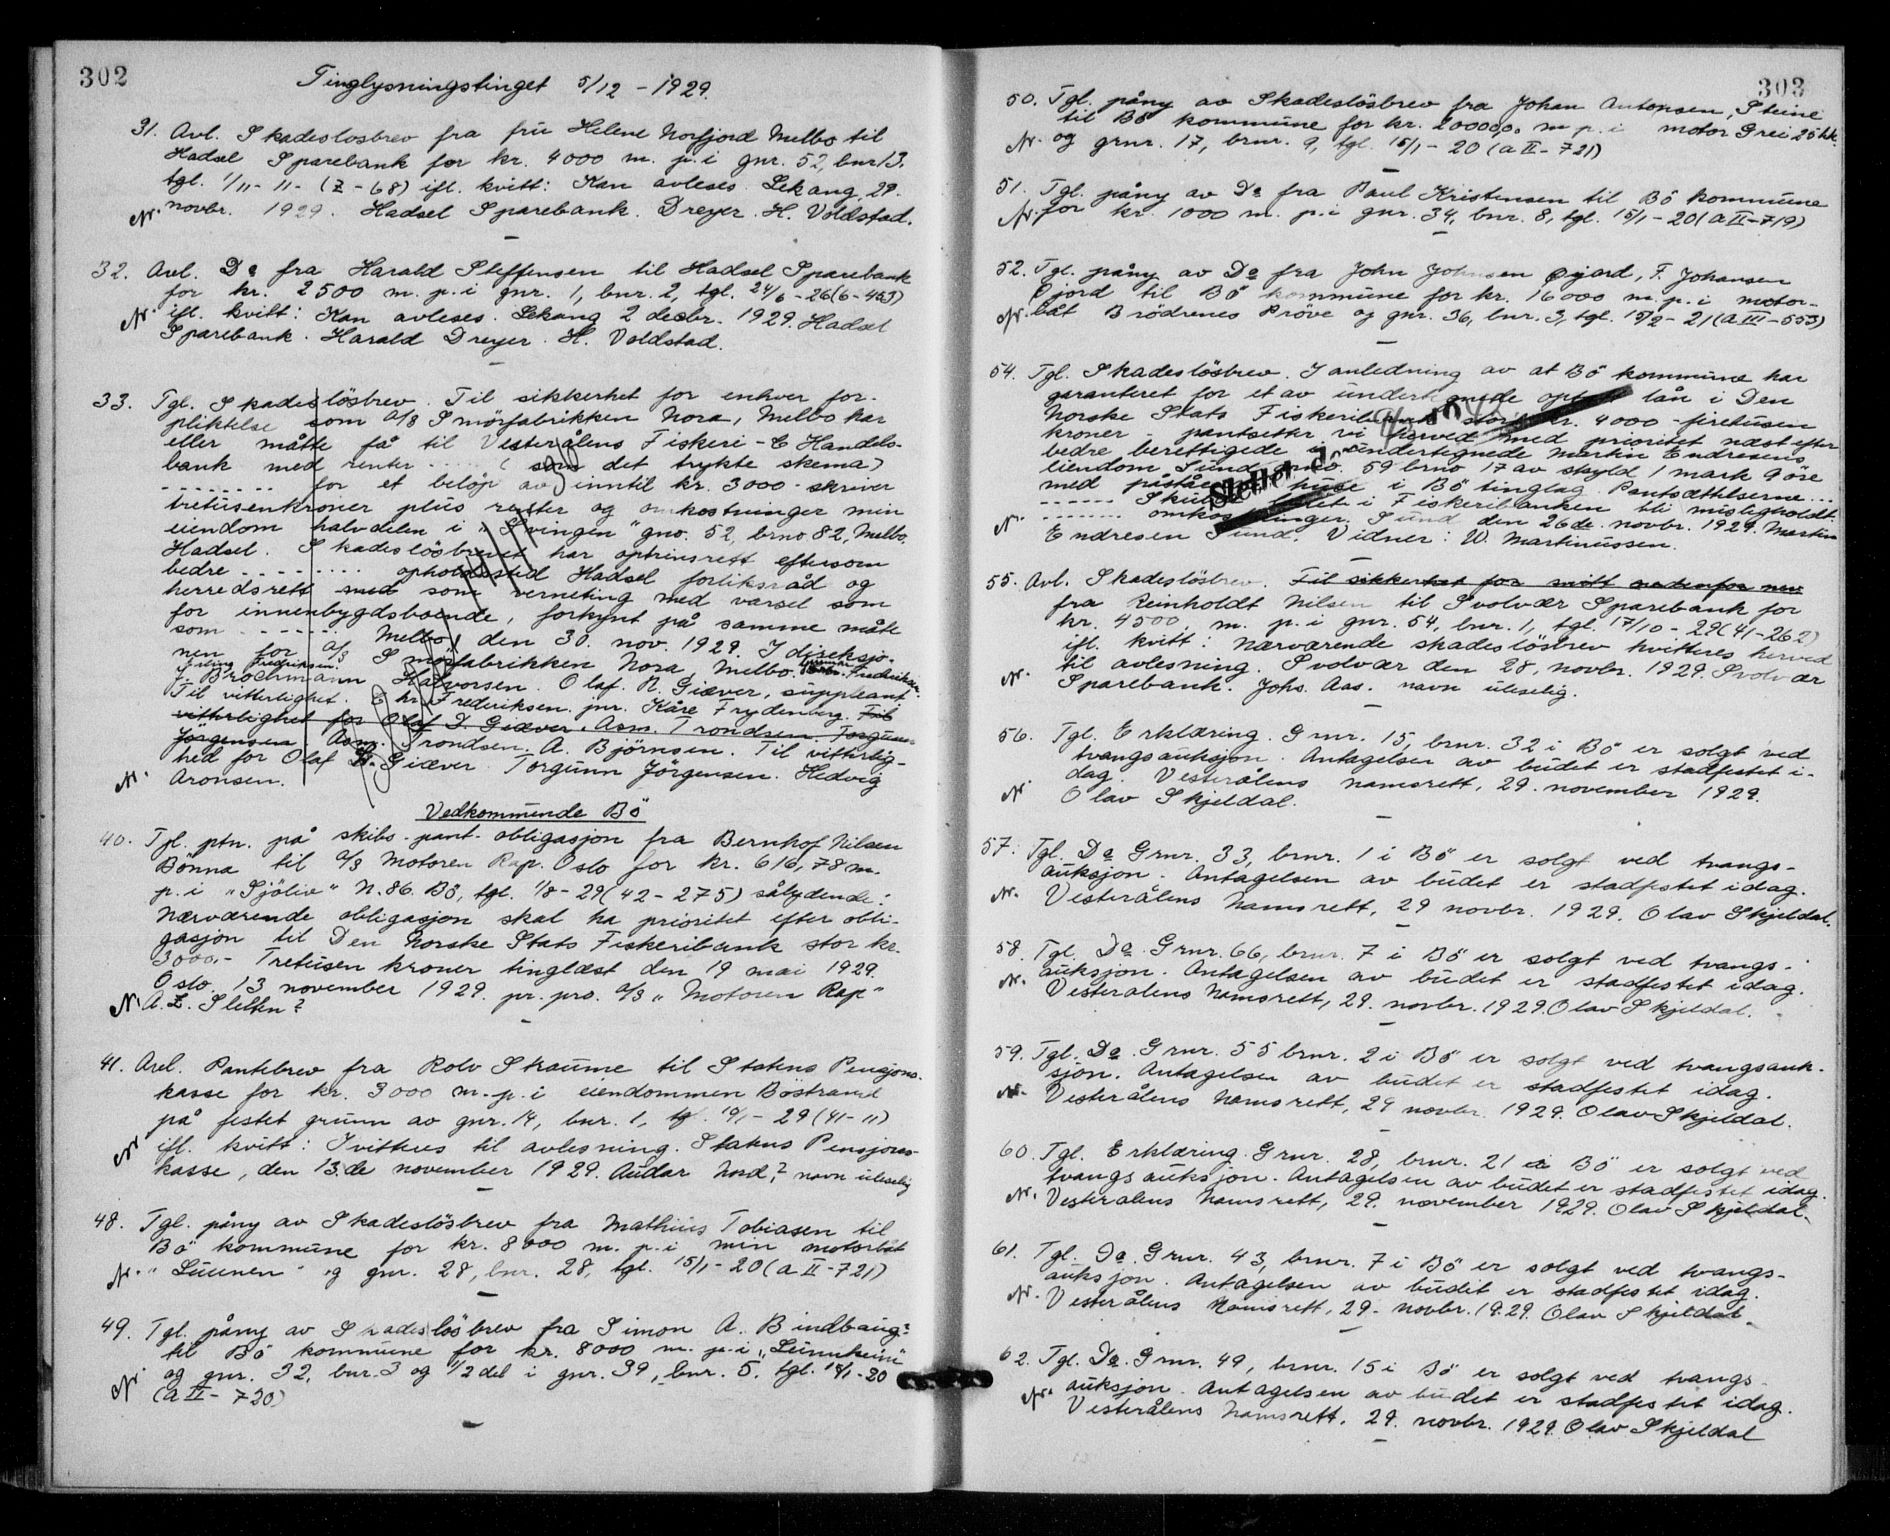 302
Tinglysningstinget 5/12 - 1929.
31. Avl. Skadeslosbrev fra fru Helene Norfjord Melbo til
Hadsel Sparebank for kr. 4000 m. p. i gnr. 52, bnr 13.
tgl. 1/11 - 11 - (Z - 68) ifl. kvitt: Kan avleses. Lekang, 29.
Nr. novbr. 1929. Hadsel Sparebank. Dreyer. H. Voldstad.
32. Avl. Do fra Harald Steffensen til Hadsel Sparebank
for kr. 2500 m. p. i gnr. 1, bnr. 2, tgl. 24/6 - 26 (6 - 453)
Nr. ifl. kvitt: Kan avleses. Lekang 2 decbr. 1929. Hadsel
Sparebank. Harald Dreyer. H. Voldstad.
33. Tgl. Skadeslösbrev. Til sikkerhet for enhver for-
pliktelse som A/S Smörfabrikken Nora, Melbo har
eller måtte få til Vesterålens Fiskeri- & Handels-
bank med renter ..... (som det trykte skema)
........ for et beløp av inntil kr. 3000 - skriver
tretusenkroner plus renter og omkostninger min
eiendom halvdelen i "Svingen" gno. 52, brno 82, Melbo,
Hadsel. Skadeslösbrevet har optrinsrett eftersom
bedre ........ opholdssted Hadsel forliksråd og
herredsrett med som verneting med varsel som
for innenbygdsboende, forkynt på samme måte
som ...... Melbo, den 30. nov. 1929. I direksjo-
nen for A/S Smörfabrikken Nora, Melbo. Fredriksen.
Erling Fredriksen.
J. Brochmann Halvorsen. Olaf. R. Giæver, suppleant.
Til vitterlighet. Chr. Frederiksen. jnr. Kåre Frydenberg. Til
vitterlighet for Olaf D. Giæver. Asm. Trondsen. Torgunn
Jörgensen Asm. Trondsen. A. Björnsen. Til vitterlig-
hed for Olaf R. Giæver Torgunn Jörgensen. Hedvig
Nr. Aronsen.
Vedkommende Bö
40. Tgl. ptn. på skibs-pant-obligasjon fra Bernhof Nilsen
Bönna til A/S Motoren Rap. Oslo for kr. 616,78 m.
p. i "Sjöliv" N. 86. Bö, tgl. 1/8 - 29 (42 - 275) sålydende:
Nærværende obligasjon skal ha prioritet efter obli-
gasjon til Den Norske Stats Fiskeribank stor kr.
3000,- Tretusen kroner tinglæst den 19 mai 1929.
Oslo, 13 november 1929. pr. pro. A/S "Motoren Rap"
Nr. A. L. Sletten?
41. Avl. Pantebrev fra Rolv Straume til Statens Pensjons-
kasse for kr. 3000 m. p. i eiendommen Böstrand
på festet grunn av gnr. 14, bnr. 1, tgl. 10/1 - 29 (41 - 11)
Nr. ifl. kvitt: Kvitteres til avlesning. Statens Pensjons-
kasse, den 13de november 1929. Audar Nord? navn uleselig
48. Tgl. påny av Skadeslösbrev fra Mathius Tobiasen til
Bö kommune for kr. 8000 m. p. i min motorbåt
Nr. "Luunen" og gnr. 28, bnr. 28, tgl. 15/1 - 20 (A II - 721)
49. Tgl. påny av Skadeslösbrev fra Simon A. Bindbaug?
til Bö kommune for kr. 8000 m. p. i "Luunheim"
Nr. og gnr. 32, bnr. 3 og 1/2 del i gnr. 39, bnr. 5, tgl. 15/1 - 20
(A II - 720)
303
50. Tgl. påny av Skadeslösbrev fra Johan Antonsen, Steine
til Bö kommune for kr. 20000,0 m p. i motor Grei 25 hk.
Nr. og grnr. 17, brnr. 9, tgl. 15/1 - 20 (A II - 721)
51. Tgl. påny av Do fra Paul Kristensen til Bö kommune
Nr. for kr. 1000 m. p. i gnr. 34, bnr. 8, tgl. 15/1 - 20 (A II - 719)
52. Tgl. påny av Do fra John Johnsen Öyjord, F. Johansen
Öjord til Bö kommune for kr. 16000 m. p. i motor-
Nr. båt Brödrenes Pröve og gnr. 36, bnr. 3, tgl. 15/2 - 21 (A III - 553)
54. Tgl. Skadeslösbrev. I anledning av at Bö kommune har
garanteret for et av undertegnede lån i Den
Norske Stats kr. 4000 - firetusen
kroner - pantsetter vi herved med prioritet næst efter
bedre berettigede undertegnede Martin Endresens
eiendom Sund 59 brno 17 av skyld 1 mark 9 öre
med påstående huse i Bö tinglag. Pantsættelserne ...
Slettet d.
...... Skulde i Fiskeribanken bli misligholdt
...... omkostninger. Sund den 26de. novbr. 1929. Martin
Nr. Endresen Sund. Vidner: W. Martinussen.
55. Avl. Skadeslösbrev. Til sikkerhet for mitt nedenfor nev
fra Reinholdt Nilsen til Svolvær Sparebank for
kr. 4500, m. p. i gnr. 54, bnr. 1, tgl. 17/10 - 29 (41 - 262)
ifl. kvitt: Nærværende skadeslösbrev kvitteres herved
til avlesning. Svolvær den 28, novbr. 1929. Svolvær
Nr. Sparebank. Johs. Aas. navn uleselig.
56. Tgl. Erklæring. Grnr. 15, brnr. 32 i Bö er solgt ved
tvangsauksjon. Antagelsen av budet er stadfestet i-
dag. Vesterålens namsrett, 29. november 1929.
Nr. Olav Skjeldal.
57. Tgl. Do Grnr. 33, brnr. 1 i Bö er solgt ved tvangs-
auksjon. Antagelsen av budet er stadfestet idag.
Nr. Vesterålens Namsrett, 29 novbr. 1929. Olav Skjeldal.
58. Tgl. Do. Grnr. 66, brnr. 7 i Bö er solgt ved tvangs-
auksjon. Antagelsen av budet er stadfestet idag.
Nr. Vesterålens Namsrett, 29. novbr. 1929. Olav Skjeldal.
59. Tgl. Do. Grnr. 55 brnr. 2 i Bö er solgt ved tvangsauk-
sjon. Antagelsen av budet er stadfestet idag.
Nr. Vesterålens Namsrett, 29 novbr. 1929. Olav Skjeldal.
60. Tgl. Erklæring. Grnr. 28, brnr. 21 i Bö er solgt ved
tvangsauksjon. Antagelsen av budet er stadfestet idag.
Nr. Vesteralens Namsrett, 29. november 1929. Olav Skjeldal.
61. Tgl. Do. Grnr. 43, brnr. 7 i Bö er solgt ved tvangs-
auksjon. Antagelsen av budet er stadfestet idag.
Nr. Vesterålens Namsrett, 29. novbr. 1929. Olav Skjeldal.
62. Tgl. Do. Grnr. 49, brnr. 15 i Bö er solgt ved tvangs-
auksjon. Antagelsen av budet er stadfestet idag.
Nr. Vesterålens Namsrett, 29. novbr. 1929. Olav Skjeldal